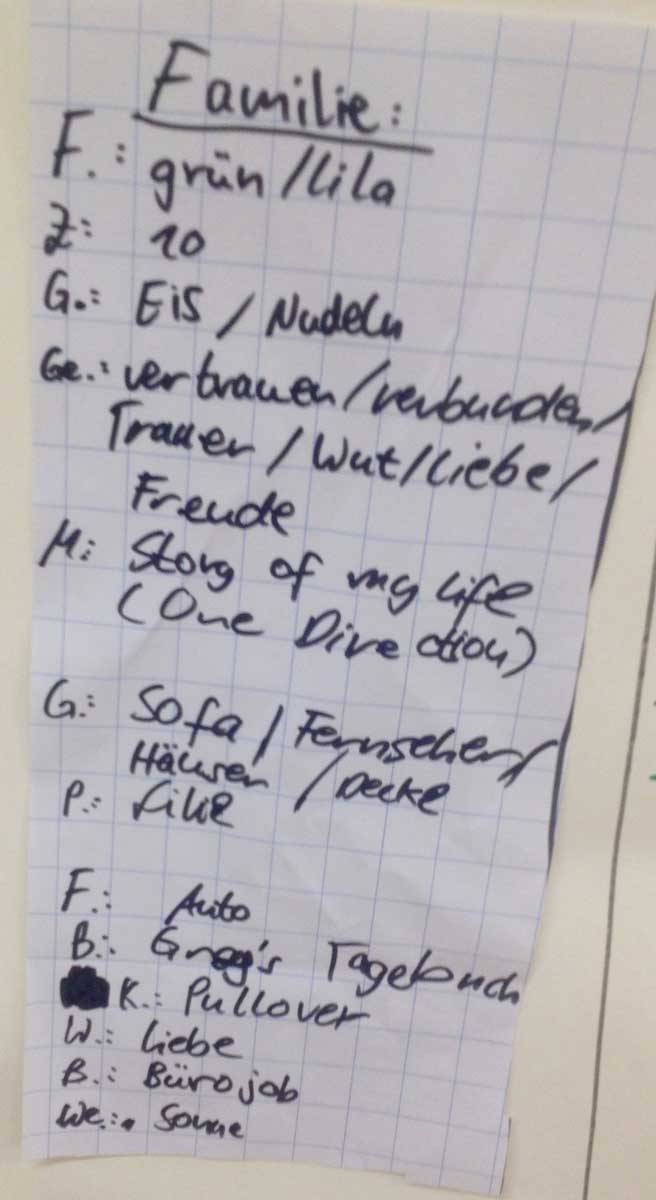 Familie:
F.: grün/lila
Z: 10
G.: Eis / Nudeln
Ge.: vertrauen/verbunden/
Trauer / Wut/Liebe/
Freude
M: Story of my life
(One Direction)
G.: Sofa / Fernseher/
Häuser / Decke
P.: Lilie
F.: Auto
B.: Greg's Tagebuch
K.: Pullover
W.: Liebe
B.: Bürojob
We.: Sonne